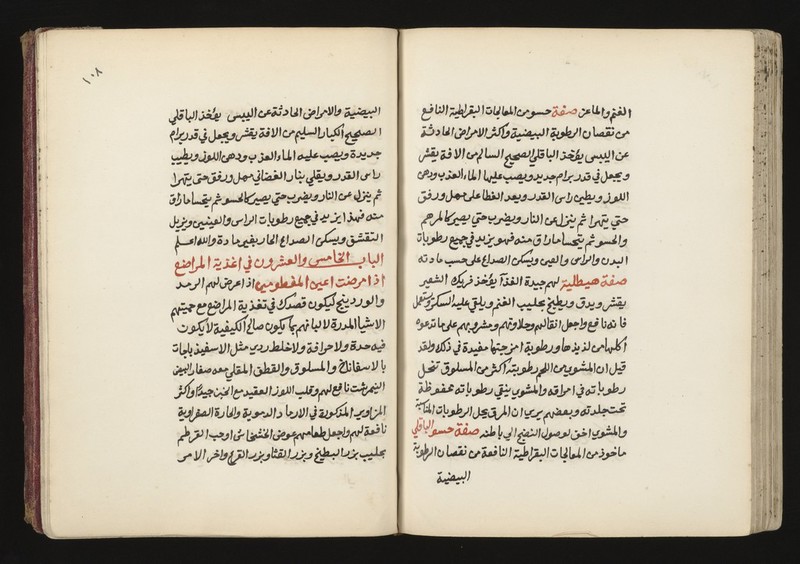 الغنم والماعز صفة حسو من المعالجات البقراطية النافع
من نقصان الرطوبة البيضية واكثر الامراض الحادثة
عن اليبس يؤخذ الباقلي الصحيح السالم من الافة يقشر
ويجعل في قدر برام جديد ويصب عليها الماء العذب ودهن
اللوز ويطين راس القدر وبعد الغطا على مهل ورفق
حتى يتهرا ثم ينزل عن النار ويضرب حتى يصير كالمرهم
والحسو ثم يتحسا ما راق منه فهو يزيد في جميع رطوبات
البدن والراس والعين ويسكن الصداع على حسب مادته
صفة هيطلية لهم جيدة الغذا يؤخذ فريك الشعير
يقشر ويدق ويطبخ بحليب الغنم ويلقي عليه السكر ويستعمل
فانه نافع واجعل انقالهم وحلاوتهم ومشروبهم على ما تدعوه
اكلها من لذيذها ورطوبة امزجتها مفيدة في ذلك ولقد
قيل ان المشوي من اللحم رطوبته اكثر من المسلوق تنحل
رطوباته في امراقه والمشوي ينقي رطوباته محفوظة
تحت جلدته وبعضهم يري ان المرق يحل الرطوبات
والمشوي اخق لوصول النضج الي باطنه صفة حسو الباقلي
ماخوذ من المعالجات البقراطية النافعة من نقصان الرطوبة
البيضية
١٠٨
البيضية والامراض الحادثة عن اليبس يؤخذ الباقلي
الصحيح الكبار السليم من الافة يقشر ويجعل في قدر برام
جديدة ويصب عليه الماء العذب ودهن اللوز ويطيب
راس القدر ويقلي بنار الغضا في مهل ورفق حتى يتهرا
ثم ينزل عن النار ويضرب حتي يصير كالحسو ثم يتحسا ما راق
منه فهذا يزيد في جميع رطوبات الراس والعينين ويزيل
التقشق ويسكن الصداع الحار بغير مادة والله اعلم
الباب الخامس والعشرون في اغذية المراضع
اذا مرضت اعين المفطومين اذا عرض لهم الرمد
والوردينج ليكون قصدك في تغذية المراضع مع حميتهم
الاشيا المدرة لالبانهم بما يكون صالح الكيفية لا يكون
فيه حدة ولا حرافة ولا خلط ردي مثل الاسفيذباجات
بالاسفاناخ والمسلوق والقطف المقلي معه صفار البيض
النيمرشت نافع لهم وقلب اللوز العقيد مع الخبز جيدا واكثر
المزاوير المذكورة في الارماد الدموية والحارة الصفراوية
نافعة لهم واجعل طعامهم عوض الخشخاش اوحب القرطم
بحليب بزر البطيخ وبزر القثا وبزر القرع واخر الامر